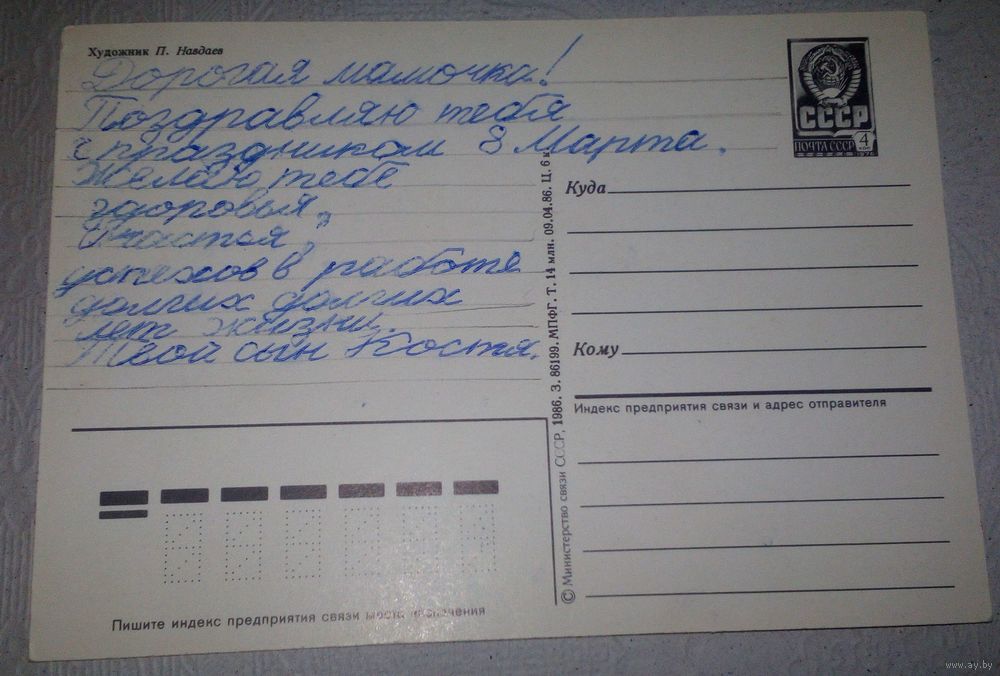 Художник П. Навдаев
Дорогая мамочка!
Поздравляю тебя
с праздником 8 Марта.
Желаю тебе
здоровья,
Счастья,
успехов в работе
долгих долгих
лет жизни.
Твой сын Костя.
СССР
ПОЧТА СССР
4
КОП
1976
Куда
Кому
Индекс предприятия связи и адрес отправителя
© Министерство связи СССР, 1986. З. 86199. МПФГ. Т. 14 млн. 09.04.86. Ц. 6 к
Пишите индекс предприятия связи места назначения
www.ay.by